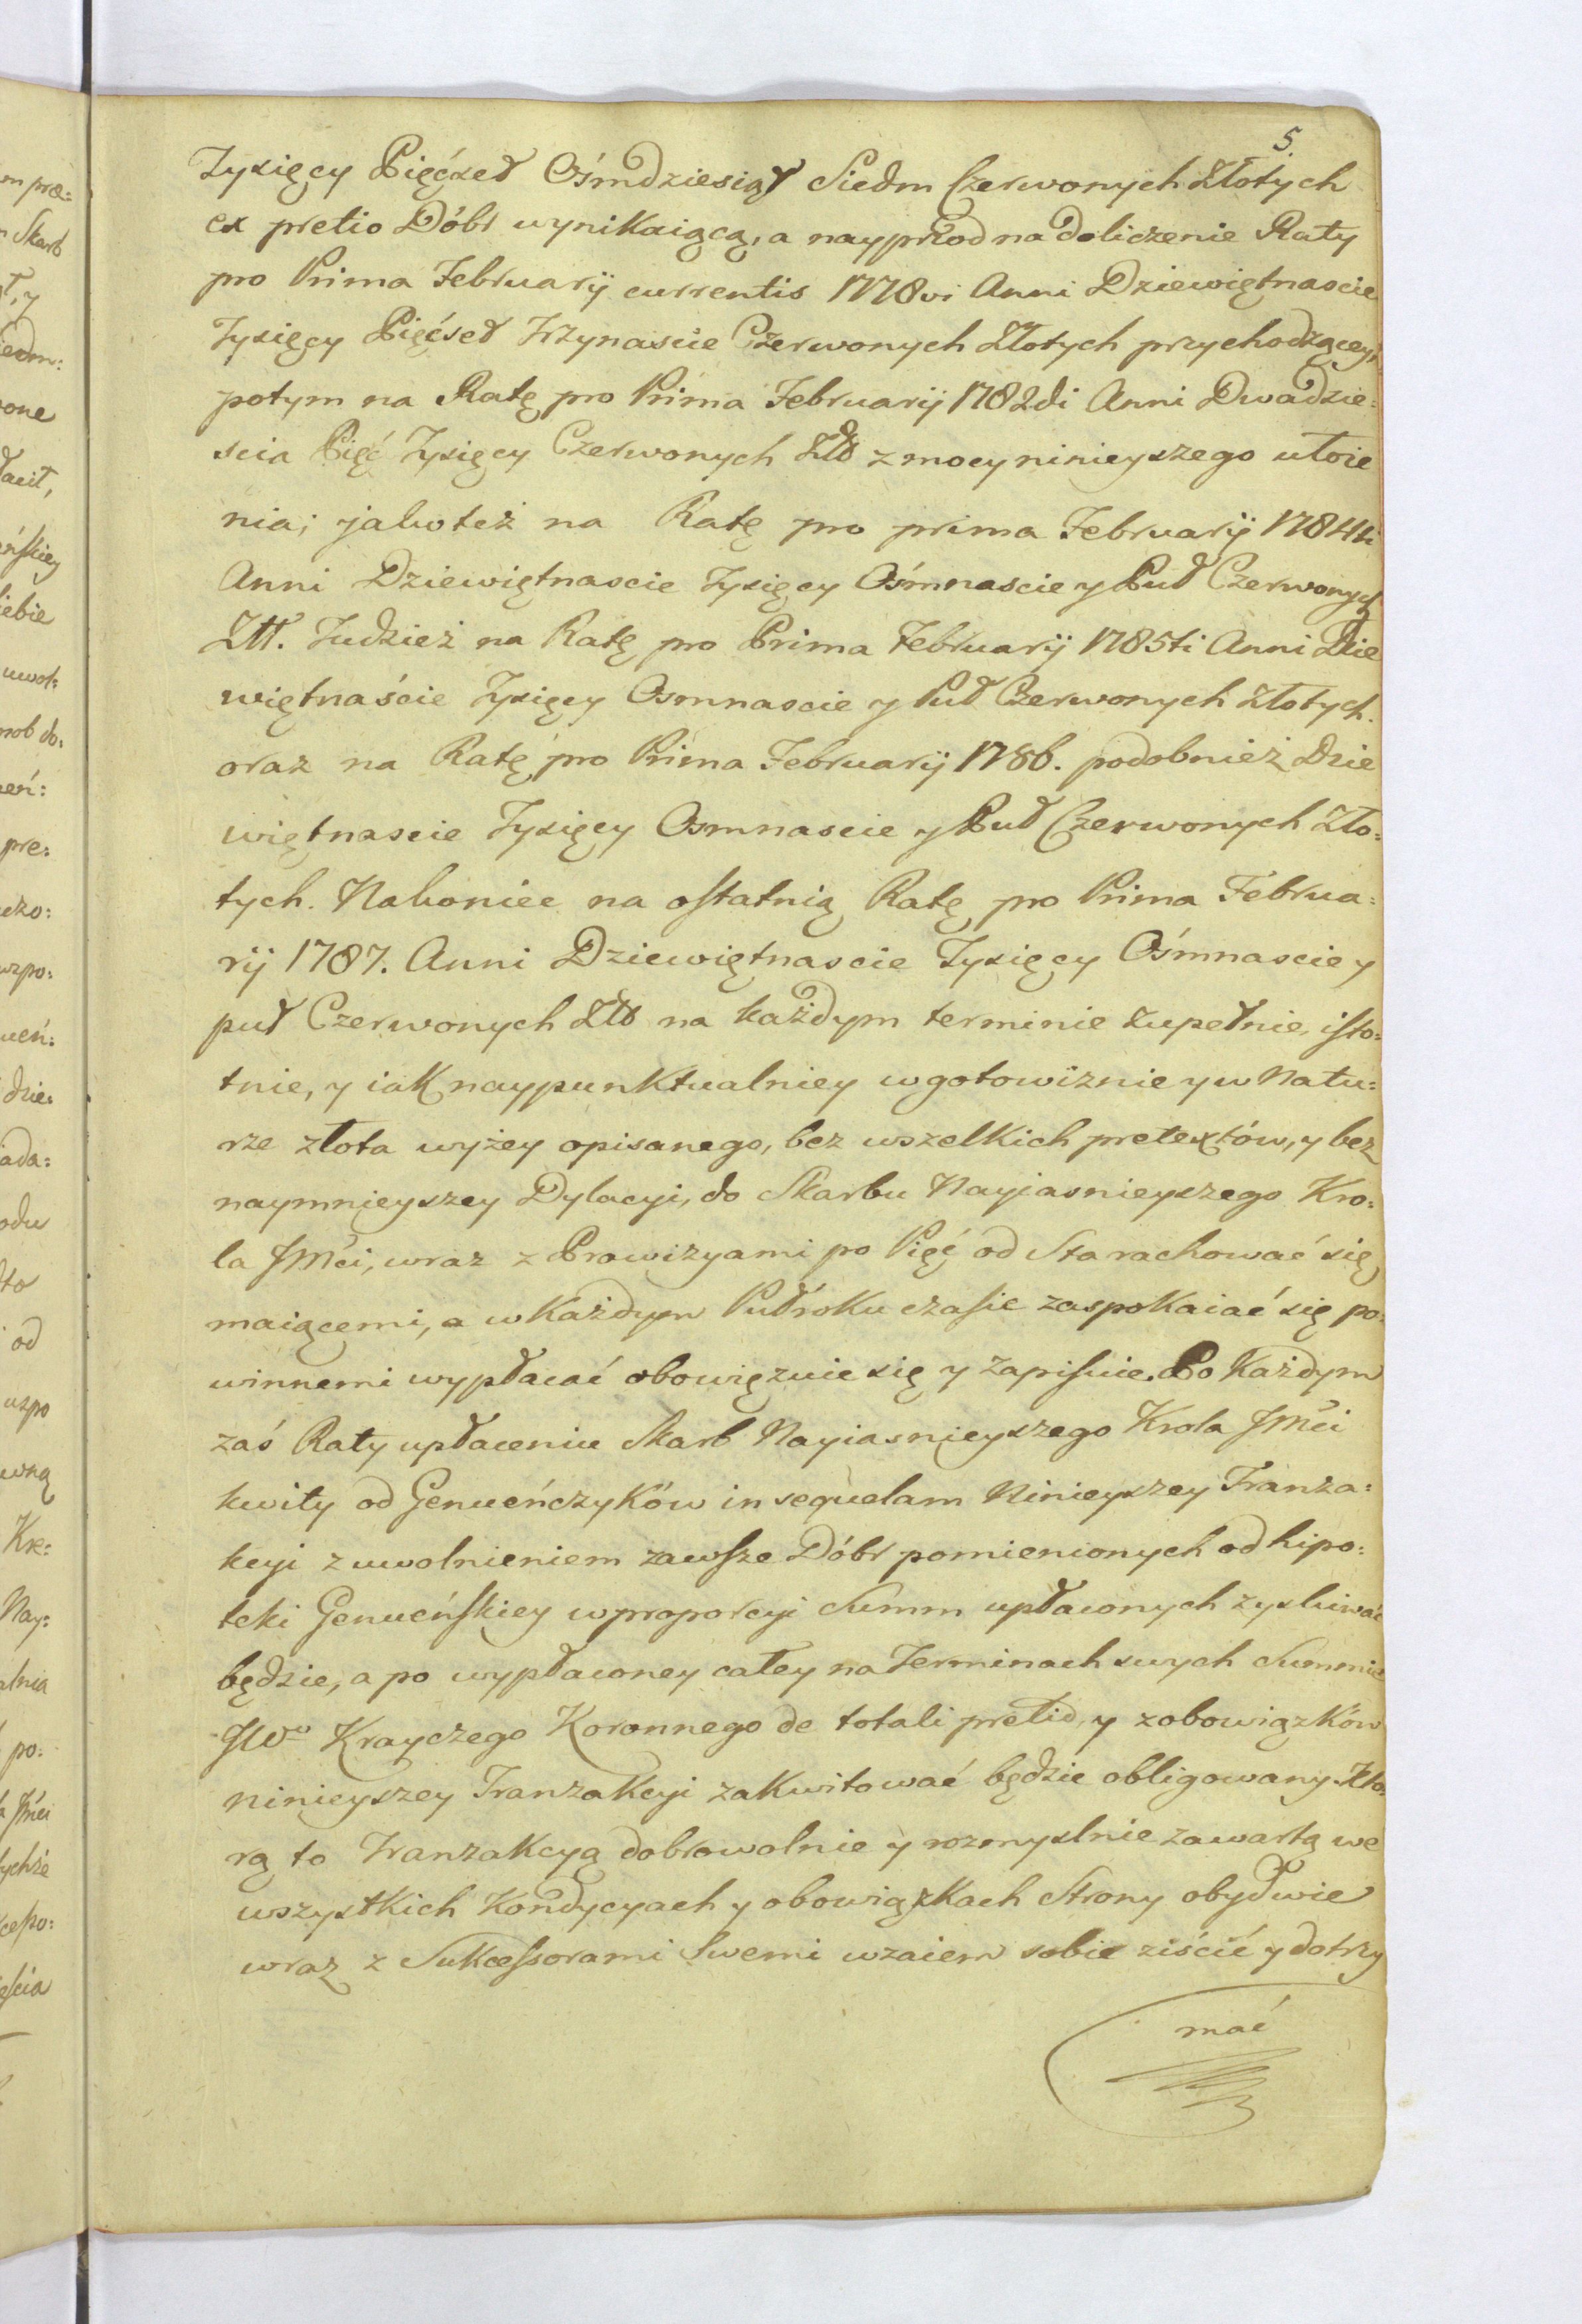 5.
Tysięcy Pięćset Ośmdziesiąt Siedm Czerwonych Złotych
ex pretio Dóbr wynikaiącą, a nayprzod na doliczenie Raty
pro Prima Februarij currentis 1778vi Anni Dziewiętnascie
Tysięcy Pięćset Trzynascie Czerwonych Złotych przychodzącey,
potym na Ratę pro Prima Februarij 1782di Anni Dwadzie=
scia Pięć Tysięcy Czerwonych Złł z mocy ninieyszego ułoże
nia; jako też na Ratę pro prima Februarij 1784ti
Anni Dziewiętnascie Tysięcy Ośmnascie y Puł Czerwonych
Złł. Tudzież na Ratę pro Prima Februarij 1785ti Anni Dzie
więtnaście Tysięcy Osmnascie y Puł Czerwonych Złotych.
oraz na Ratę pro Prima Februarij 1786. podobnież Dzie
więtnascie Tysięcy Osmnascie y Puł Czerwonych Zło=
tych. Nakoniec na ostatnią Ratę pro Prima Februa=
rij 1787. Anni Dziewiętnascie Tysięcy Ośmnascie y
puł Czerwonych Złł na każdym terminie zupełnie, isto=
tnie, y iak naypunktualniey w gotowiznie y w Natu=
rze złota wyżey opisanego, bez wszelkich pretextów, y bez
naymnieyszey Dylacyi, do Skarbu Nayiasnieyszego Kro=
la JMći, wraz z Prowizyami po Pięć od Sta rachować się
maiącemi, a w Każdym Pułroku czasie zaspokaiać się po=
winnemi wypłacać obowięzuie się y zapisuie. Po Każdym
zaś Raty upłaceniu Skarb Nayiasnieyszego Krola JMći
kwity od Genueńczyków in sequelam Ninieyszey Tranza=
kcyi z uwolnieniem zawsze Dóbr pomienionych od hipo=
teki Genueńskiey w proporcyi Summ upłaconych zyskiwać
będzie, a po wypłaconey całey na Terminach swych Summie
JWo Krayczego Koronnego de totali pretio, y z obowiązków
ninieyszey Tranzakcyi zakwitować będzie obligowany. Kto=
rą to Tranzakcyą dobrowolnie y rozmyslnie zawartą we
wszystkich Kondycyach y obowiązkach Strony obydwie
wraz z Sukcessorami Swemi wzaiem sobie ziścić y dotrzy
mać